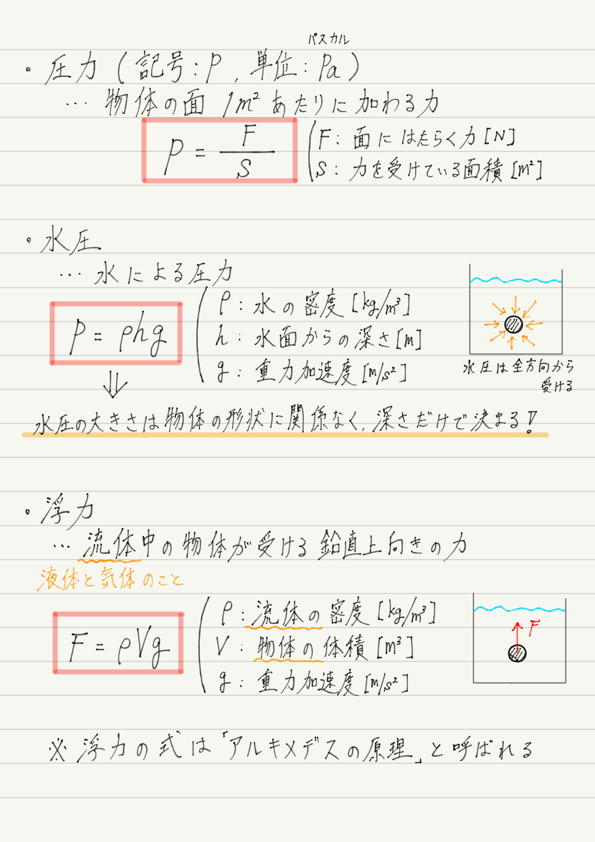 パスカル
・圧力（記号：P，単位：Pa）
… 物体の面 1m² あたりに加わる力
P = F/S
F：面にはたらく力[N]
S：力を受けている面積[m²]
・水圧
… 水による圧力
P = ρhg
ρ：水の密度[kg/m³]
h：水面からの深さ[m]
g：重力加速度[m/s²]
水圧は全方向から
受ける
水圧の大きさは物体の形状に関係なく，深さだけで決まる！
・浮力
… 流体中の物体が受ける鉛直上向きの力
液体と気体のこと
F = ρVg
ρ：流体の密度[kg/m³]
V：物体の体積[m³]
g：重力加速度[m/s²]
F
※ 浮力の式は「アルキメデスの原理」と呼ばれる